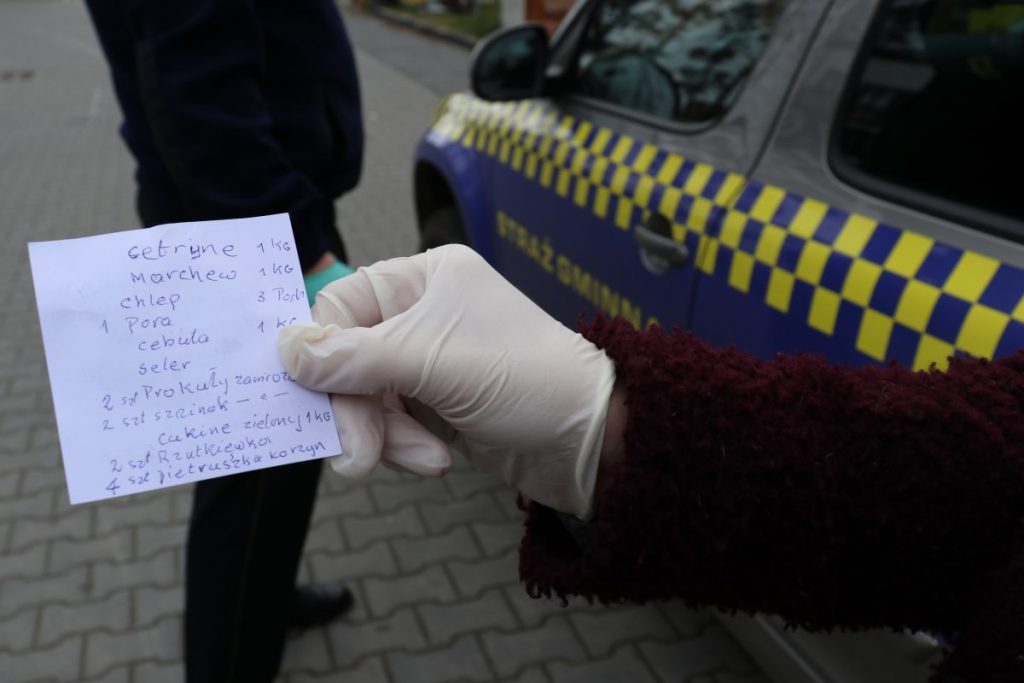 cetryne 1 KG
Marchew 1 KG
chlep 3 
1 Pora
cebula 1 KG
seler
2 szt Prokuły zamroż
2 szt szpinok — " —
Cukine zielony 1 KG
2 szt Rzutkiewka
4 szt pietruszka korzyn
STRAŻ GMINNA